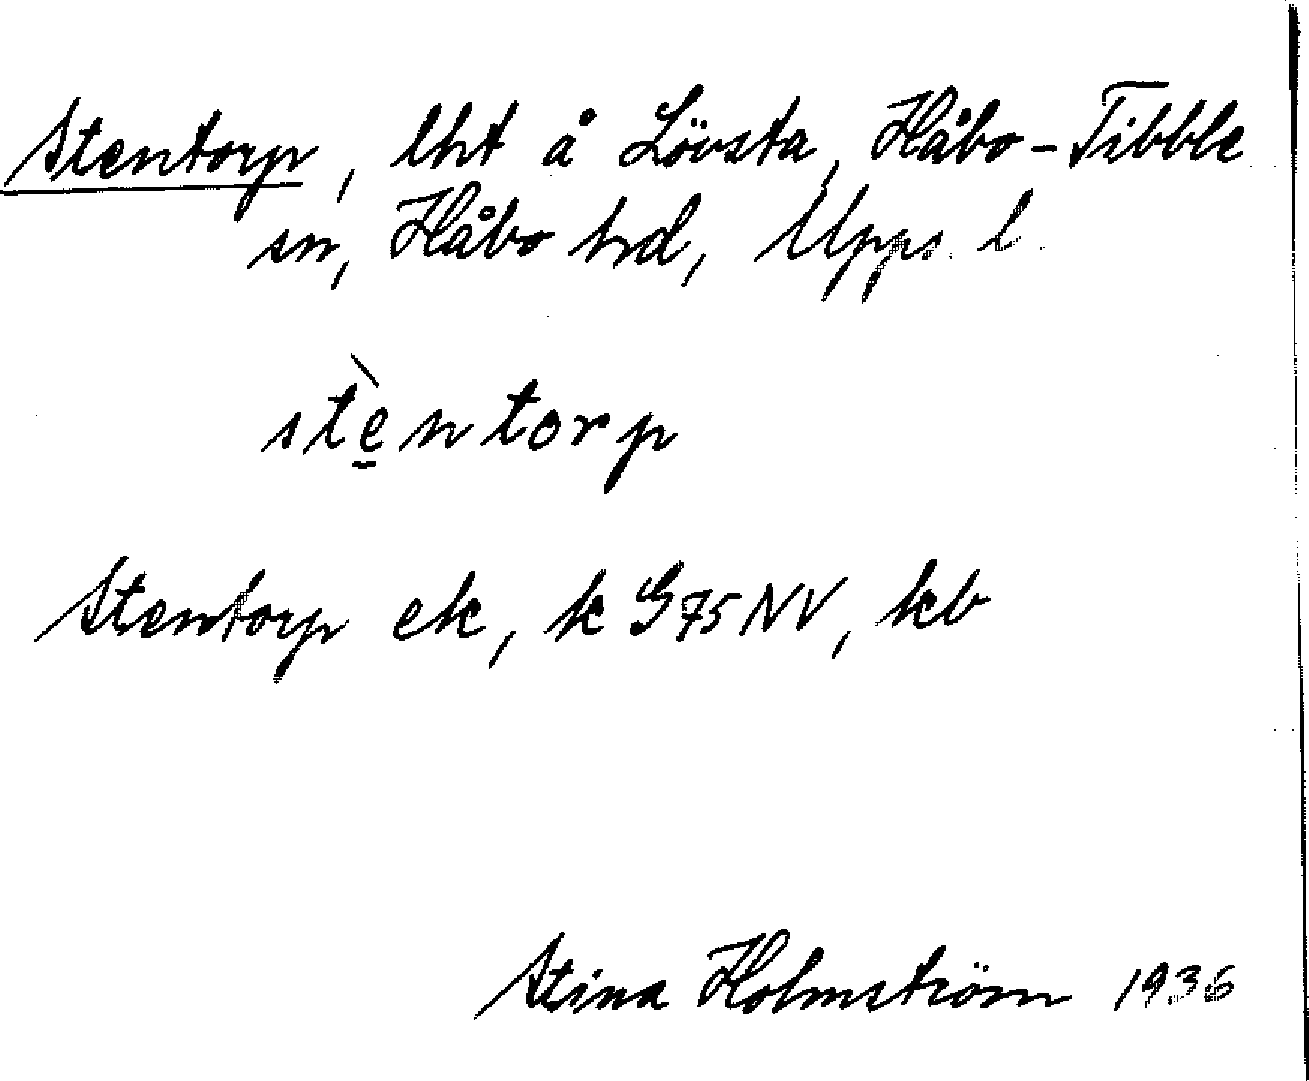 Stentorp, lht å Lövsta, Håbo-Tibble
sn, Håbo hrd, Upps. l.
stè̱ntorp
Stentorp ek, k G75NV, kb
Stina Holmström 1936